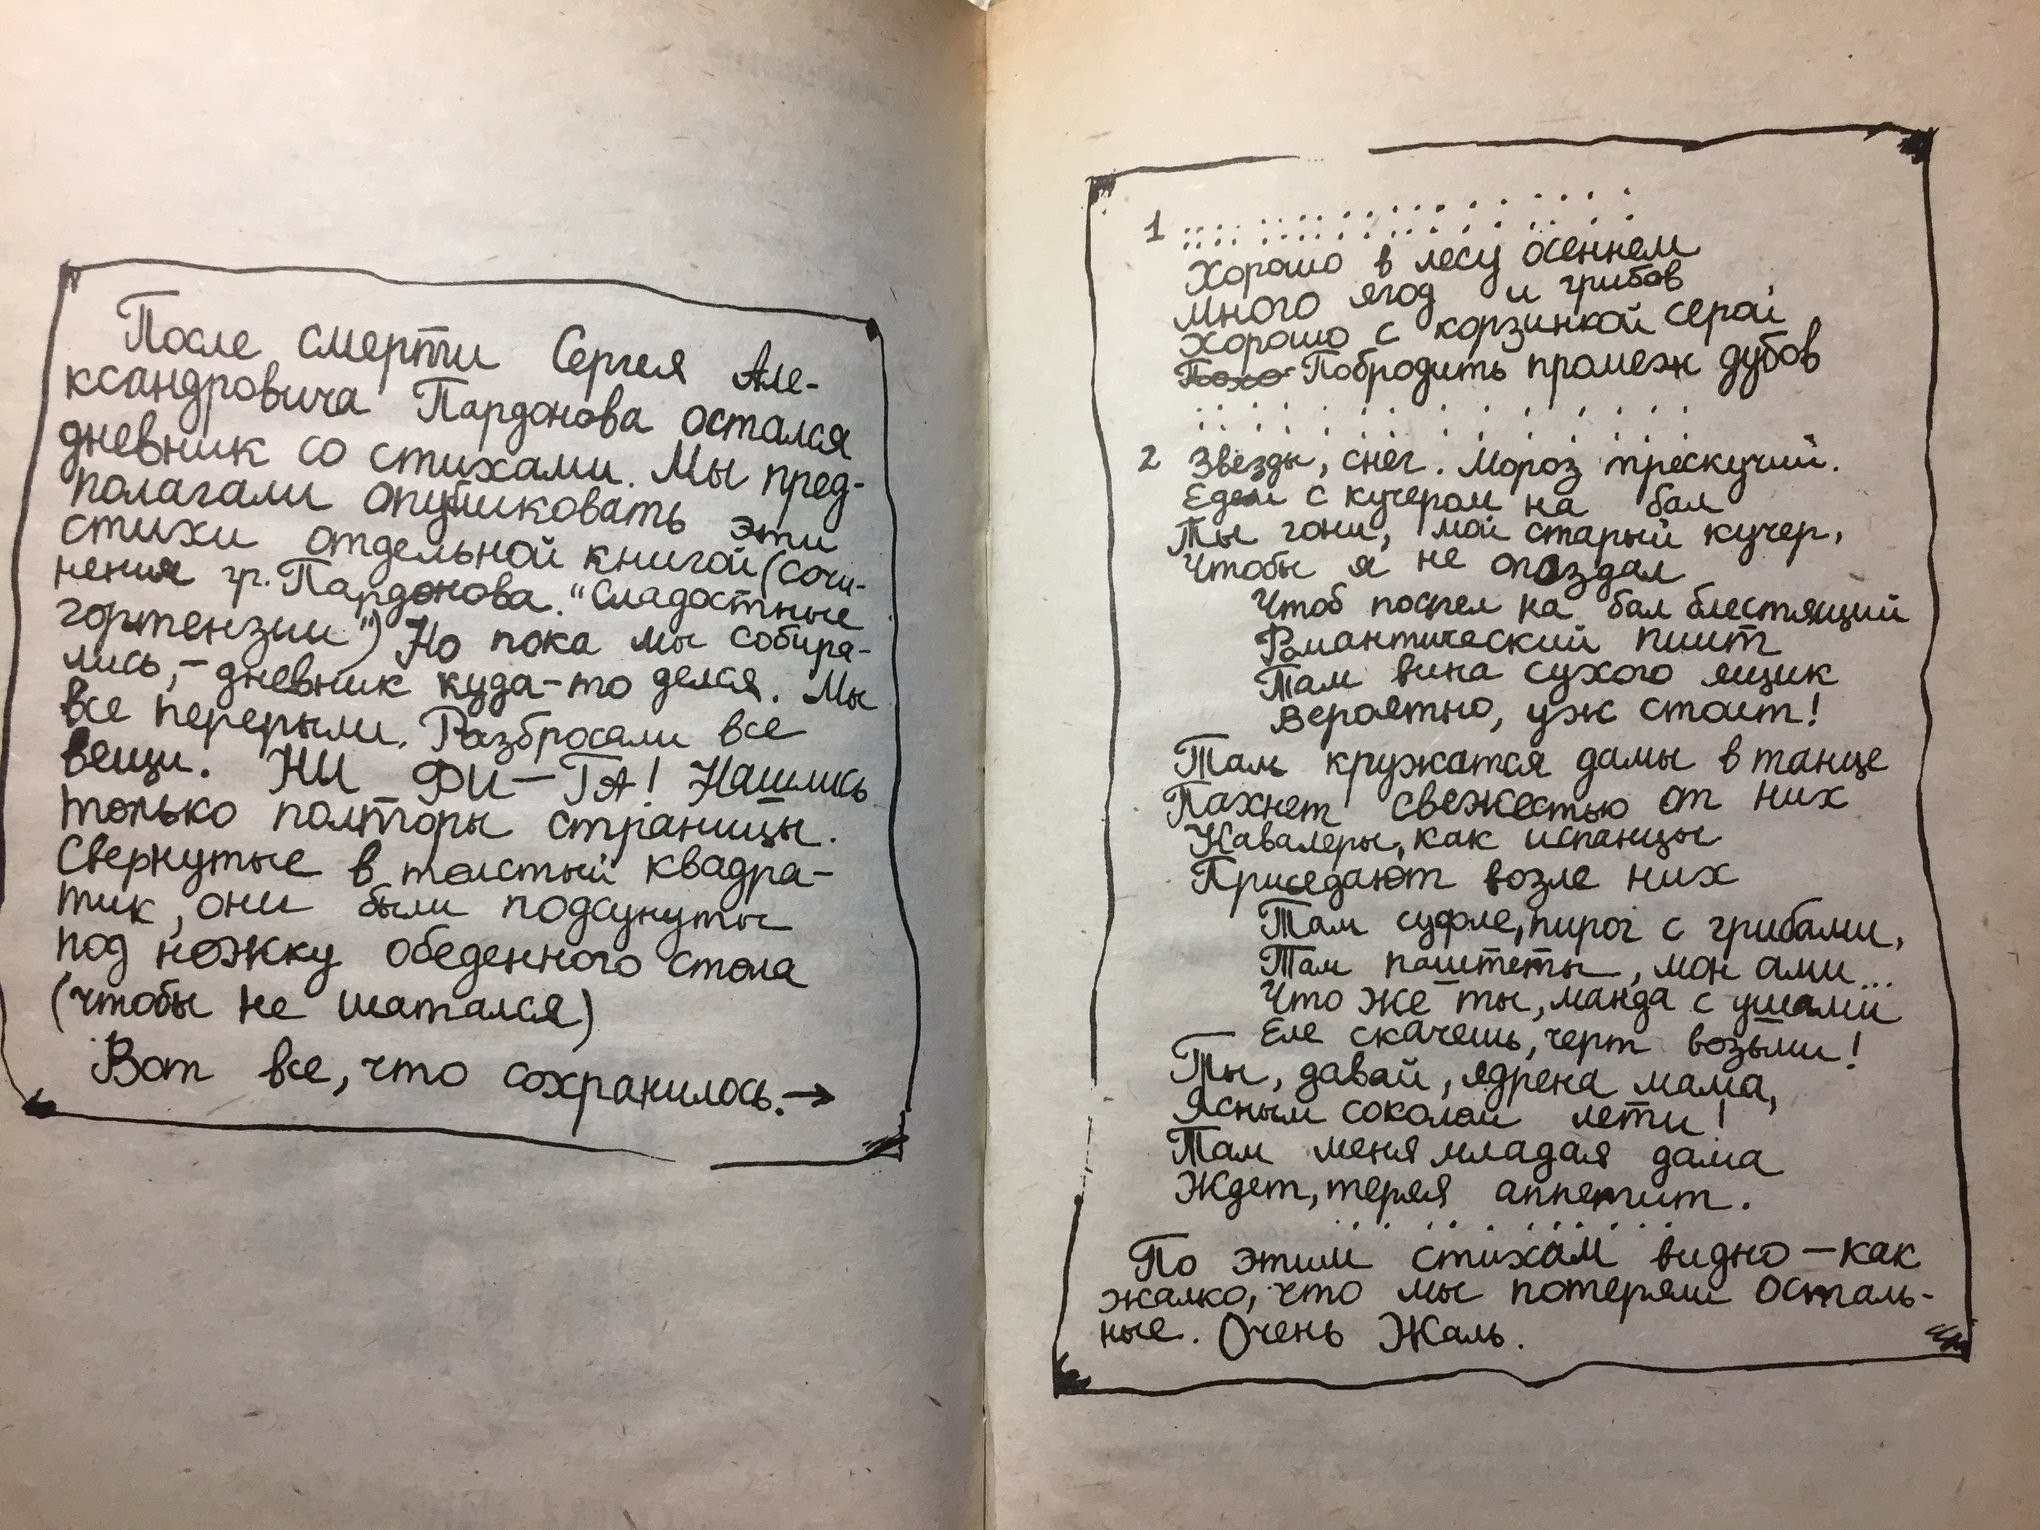 После смерти Сергея Але-
ксандровича Пардонова остался
дневник со стихами. Мы пред-
полагали опубликовать эти
стихи отдельной книгой (сочи-
нения гр. Пардонова. "Сладостные
гортензии") Но пока мы собира-
лись, - дневник куда-то делся. Мы
все перерыли. Разбросали все
вещи. НИ ФИ-ГА! Нашлись
только полторы страницы.
Свернутые в толстый квадра-
тик, они были подсунуты
под ножку обеденного стола
(чтобы не шатался)
Вот все, что сохранилось. →
1
Хорошо в лесу осеннем
Много ягод и грибов
Хорошо с корзинкой серой
Похо Побродить промеж дубов
2 Звезды, снег. Мороз трескучий.
Едем с кучером на бал
Ты гони, мой старый кучер,
Чтобы я не опоздал
Чтоб поспел на бал блестящий
Романтический пиит
Там вина сухого ящик
Вероятно, уж стоит!
Там кружатся дамы в танце
Пахнет свежестью от них
Кавалеры, как испанцы
Приседают возле них
Там суфле, пирог с грибами,
Там паштеты, мон ами...
Что же ты, манда с ушами
Еле скачешь, черт возьми!
Ты, давай, ядрена мама,
Ясным соколом лети!
Там меня младая дама
Ждет, теряя аппетит.
По этим стихам видно - как
жалко, что мы потеряли осталь-
ные. Очень Жаль.